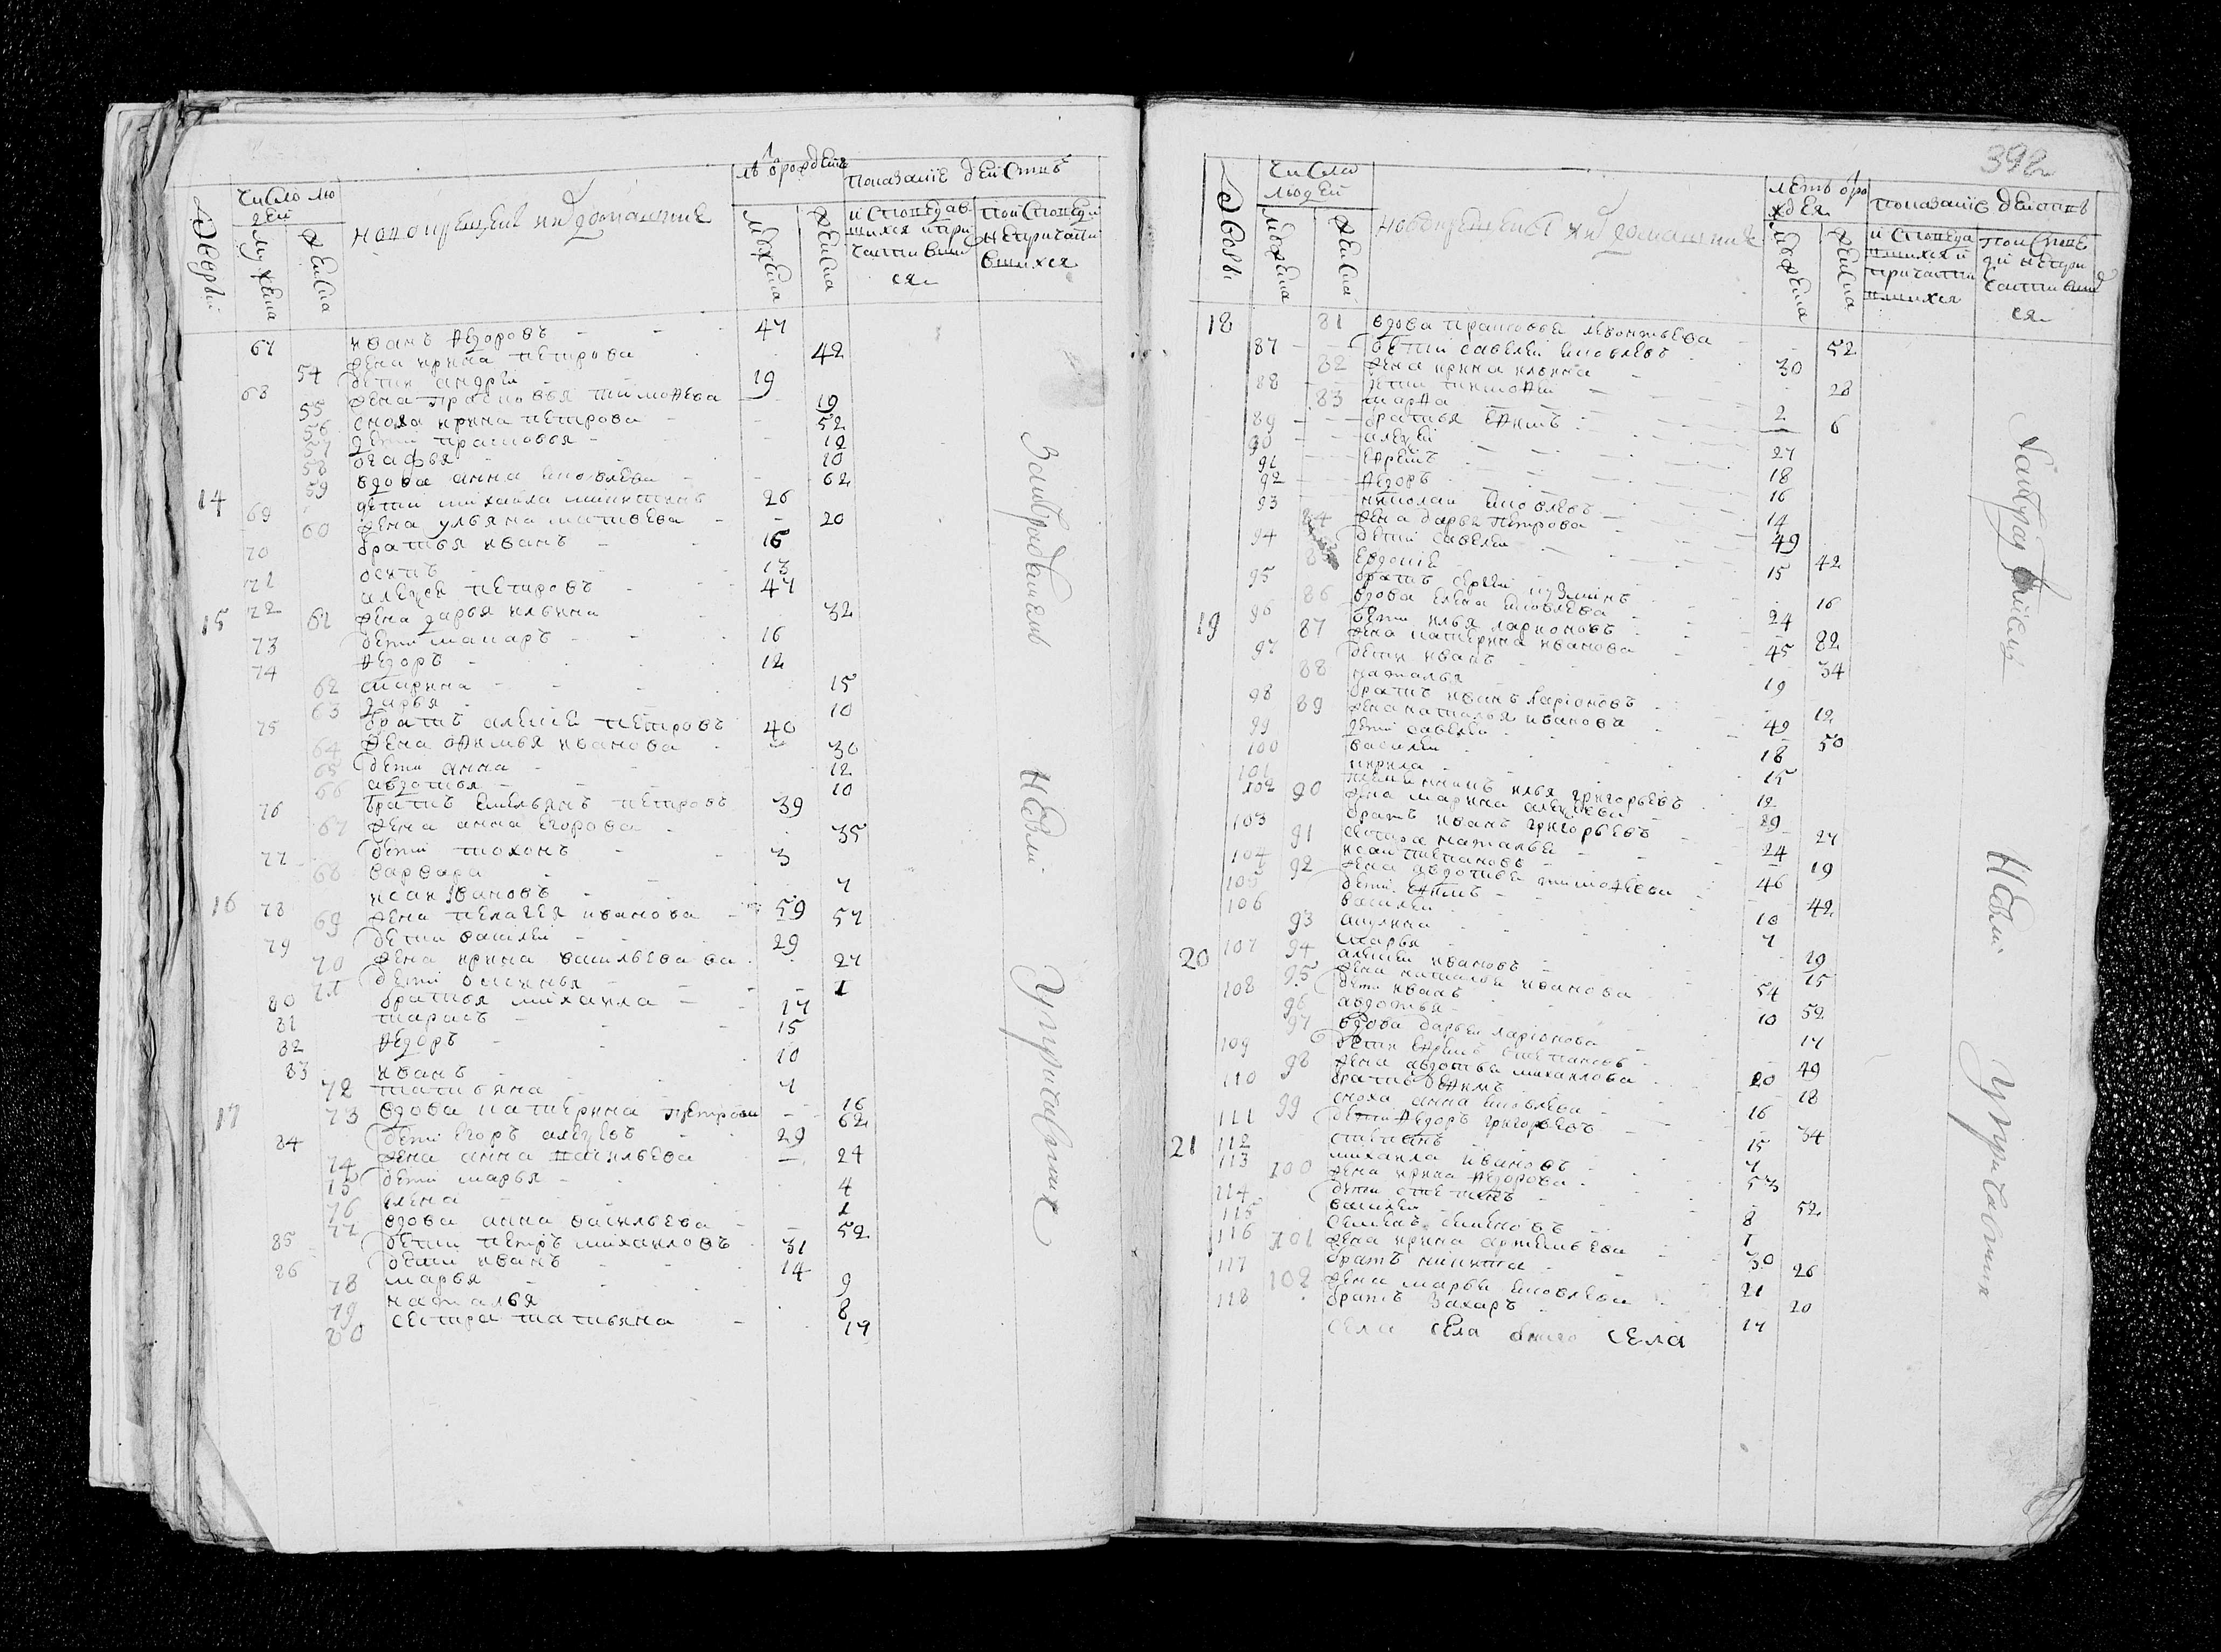 Дворы
Число людей
мужеска
женска
новокрещены и их домашние
лѣ от рождения
мужеска
женска
показание действ
исповедавшихся и причастившихся
по исповеди непричастившихся
67 иванъ Ѳедоровъ 47
54 жена ирина петрова 42
68 дети андрей 19
55 жена прасковья тимоѳева 19
56 сноха ирина петрова 52
57 дети прасковья 12
58 огафья 10
59 вдова анна яковлева 62
14 69 дети михайла никитинъ 26
60 жена ульяна матвева 20
70 братья иванъ 16
71 осипъ 13
15 72 алексеи петровъ 47
61 жена дарья ильина 32
73 дети макаръ 16
74 Ѳедоръ 12
62 марина 15
63 дарья 10
75 братъ алексей петровъ 40
64 жена оѳимья иванова 30
65 дети анна 12
66 авдотья 10
76 братъ емельянъ петровъ 39
67 жена анна егорова 35
77 дети тихонъ 3
68 варвара 7
16 78 исаи ивановъ 59
69 жена пелагея иванова 57
79 дети василей 29
70 жена ирина васильева 27
71 дети оксинья 1
80 братья михаила 17
81 тарасъ 15
82 Ѳедоръ 10
83 иванъ 7
72 татьяна 16
17 73 вдова катерина петрова 62
84 дети егоръ алексеевъ 29
74 жена анна васильева 24
75 дети марья 4
76 елена 1
77 вдова анна васильева 52
85 дети петръ михаиловъ 31
86 дети иванъ 14
78 марья 9
79 наталья 8
80 сестра татьяна 19
За
Небыли
У причастия
392
Дворы
Число людей
мужеска
женска
новокрещены и их домашние
летъ от рождея
мужеска
женска
показание действъ
исповедавшихся и причастившихся
по исповеди непричастившихся
18 81 вдова прасковья леонтьева 52
87 дети савелей яковлевъ 30
82 жена ирина ильина 28
88 дети тимоѳей 2
83 марѳа 6
89 братья еѳимъ 27
90 алексей 18
91 еѳремъ 16
92 Ѳедоръ 14
93 николай яковлевъ 49
84 жена дарья петрова 42
94 дети савелей 15
85 евдокие 16
95 братъ сергей кузминъ 24
19 86 вдова елена яковлева 82
96 дети илья ларионовъ 45
87 жена катерина иванова 34
97 дети иванъ 19
88 наталья 12
98 братъ иванъ ларионовъ 49
89 жена наталья иванова 50
99 дети савелей 18
100 василей 15
101 кирила 12
102 племянникъ илья григорьевъ 29
90 жена марина алексеева 27
103 братъ иванъ григорьевъ 24
91 сестра наталья 19
104 исаи степановъ 46
92 жена авдотья тимоѳеева 42
105 дети еѳимъ 10
106 василеи 7
93 акулина 19
94 марья 15
20 107 алексей ивановъ 54
95 жена наталья иванова 52
108 дети иванъ 10
96 авдотья 17
97 вдова дарья ларионова 49
109 дети еѳремъ степановъ 20
98 жена авдотья михаилова 18
110 братъ еѳимъ 16
99 сноха анна яковлева 34
111 дети Ѳедоръ григорьевъ 15
112 степанъ 7
21 113 михаила ивановъ 53
100 жена ирина Ѳедорова 52
114 дети степанъ 8
115 василеи 1
116 семенъ семеновъ 30
101 жена ирина артемьева 26
117 братъ никита 21
102 жена марья яковлева 20
118 братъ захаръ 17
села
Небыли
У причастия